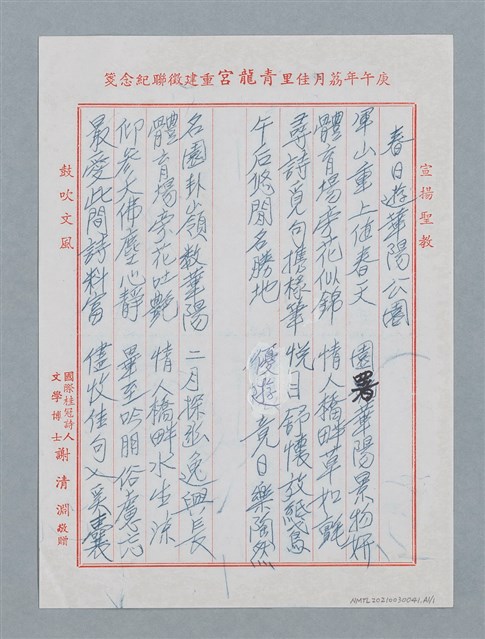 庚午年荔月佳里青龍宮重建徵聯紀念箋
宣揚聖教
春日遊華陽公園
軍山重上值春天　園署華陽景物妍
體育場旁花似錦　情人橋畔草如氈
尋詩覓句攜椽筆　悅目舒懷放紙鳶
午后悠閒名勝地　優遊竟日樂陶然
名園卦嶺數華陽　二月探幽逸興長
體育場旁花吐艷　情人橋畔水生涼
仰參大佛塵心靜　畢至吟朋俗慮忘
最愛此間詩料富　儘收佳句入奚囊
鼓吹文風
國際桂冠詩人
文學博士
謝清淵敬贈
NMTL20210030041.A1/1